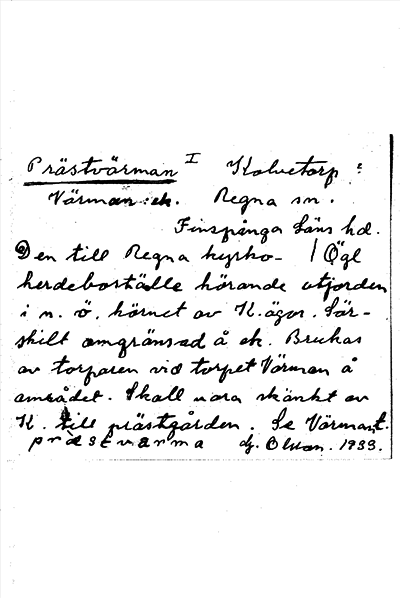 Prästvärman I Kolvetorp :
Värman : ek. Regna sn.
Finspånga läns hd.
Den till Regna kyrko- / Ögl
herdeboställe hörande utjorden
i n. ö. hörnet av K. ägor. Sär-
skilt omgränsad å ek. Brukas
av torparen vid torpet Värman å
området. Skall vara skänkt av
K. till prästgården. Se Värmant.
præstværma dj. Olsson. 1933.